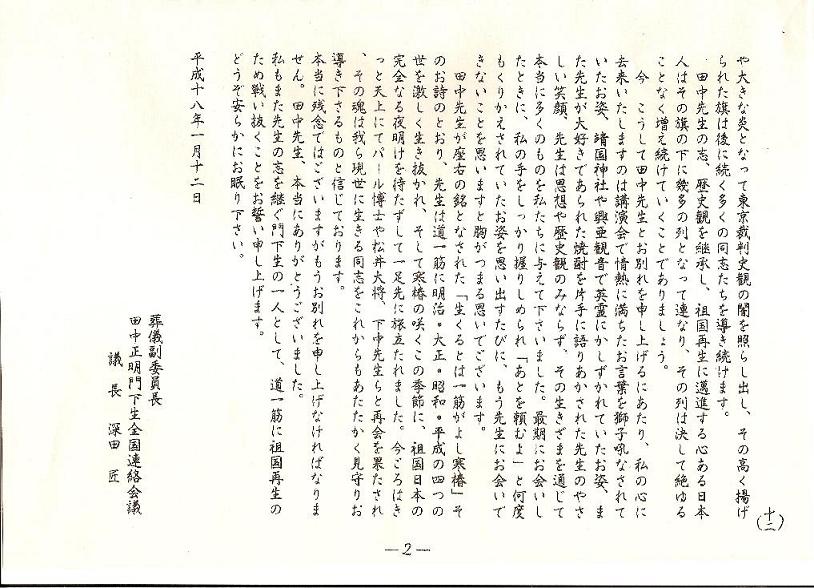 や大きな炎となって東京裁判史観の闇を照らし出し、その高く揚げ
られた旗は後に続く多くの同志たちを導き続けます。
田中先生の志、歴史観を継承し、祖国再生に邁進する心ある日本
人はその旗の下に幾多の列となって連なり、その列は決して絶ゆる
ことなく増え続けていくことでありましょう。
今　こうして田中先生とお別れを申し上げるにあたり、私の心に
去来いたしますのは講演会で情熱に満ちたお言葉を獅子吼なされて
いたお姿、靖国神社や興亜観音で英霊にかしずかれていたお姿、ま
た先生が大好きであられた焼酎を片手に語りあかされた先生のやさ
しい笑顔、先生は思想や歴史観のみならず、その生きざまを通じて
本当に多くのものを私たちに与えて下さいました。最期にお会いし
たときに、私の手をしっかり握りしめられ「あとを頼むよ」と何度
もくりかえされていたお姿を思い出すたびに、もう先生にお会いで
きないことを思いますと胸がつまる思いでございます。
田中先生が座右の銘となされた「生くるとは一筋がよし寒椿」そ
のお詩のとおり、先生は道一筋に明治・大正・昭和・平成の四つの
世を激しく生き抜かれ、そして寒椿の咲くこの季節に、祖国日本の
完全なる夜明けを待たずして一足先に旅立たれました。今ごろはき
っと天上にてパール博士や松井大将、下中先生らと再会を果たされ
、その魂は我ら現世に生きる同志をこれからもあたたかく見守りお
導き下さるものと信じております。
本当に残念ではございますがもうお別れを申し上げなければなりま
せん。田中先生、本当にありがとうございました。
私もまた先生の志を継ぐ門下生の一人として、道一筋に祖国再生の
ため戦い抜くことをお誓い申し上げます。
どうぞ安らかにお眠り下さい。
平成十八年一月十二日
葬儀副委員長
田中正明門下生全国連絡会議
議　長　深田　匠
(十二)
—2—